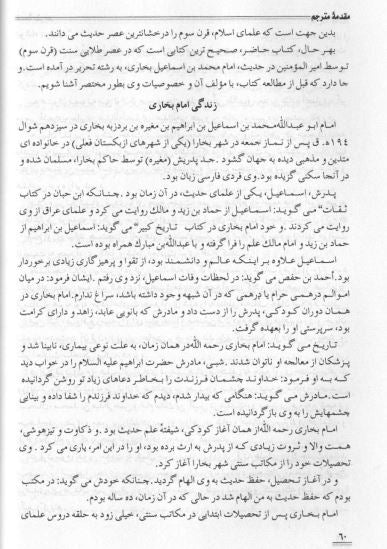 مقدمهٔ مترجم
بدین جهت است که علمای اسلام، قرن سوم را درخشانترین عصر حدیث می دانند.
بهر حال، کتاب حاضر، صحیح ترین کتابی است که در عصر طلایی سنت (قرن سوم)
توسط امیر المؤمنین در حدیث، امام محمد بن اسماعیل بخاری، به رشته تحریر در آمده است. و
جا دارد که قبل از مطالعه کتاب، با مؤلف آن و خصوصیات وی بطور مختصر آشنا شویم.
زندگی امام بخاری
امام ابو عبدالله محمد بن اسماعیل بن ابراهیم بن مغیره بن بردزبه بخاری در سیزدهم شوال
۱۹۴ ه. ق پس از نماز جمعه در شهر بخارا (یکی از شهرهای ازبکستان فعلی) در خانواده ای
متدین و مذهبی دیده به جهان گشود. جد پدریش (مغیره) توسط حاکم بخارا، مسلمان شده و
در آنجا سکنی گزیده بود. وی فردی فارسی زبان بود.
پدرش، اسماعیل، یکی از علمای حدیث، در آن زمان بود. چنانکه ابن حبان در کتاب
ثقات" می گوید: اسماعیل از حماد بن زید و مالک روایت می کرد و علمای عراق از وی
روایت می کردند. و خود امام بخاری در کتاب "تاریخ کبیر" می گوید: اسماعیل بن ابراهیم از
حماد بن زید و امام مالک علم را فرا گرفته و با عبدالله بن مبارک همراه بوده است.
اسماعیل علاوه بر اینکه عالم و دانشمند بود، از تقوا و پرهیزگاری زیادی برخوردار
بود. احمد بن حفص می گوید: در لحظات وفات اسماعیل، نزد وی رفتم. ایشان فرمود: در میان
اموالم درهمی حرام یا درهمی که در آن شبهه وجود داشته باشد، سراغ ندارم. امام بخاری در
همان دوران کودکی، پدرش را از دست داد و مادرش که بانویی عابد، زاهد و دارای کرامت
بود، سرپرستی او را بعهده گرفت.
تاریخ می گوید: امام بخاری رحمه الله در همان زمان، به علت نوعی بیماری، نابینا شد و
پزشکان از معالجه او ناتوان شدند. شبی، مادرش حضرت ابراهیم علیه السلام را در خواب دید
که به او فرمود: خداوند چشمان فرزندت را بخاطر دعاهای زیاد تو روشن گردانیده
است. مادرش می گوید: هنگامی که بیدار شدم، دیدم که خداوند فرزندم را شفا داده و بینایی
چشمهایش را به وی بازگردانیده است.
امام بخاری رحمه الله از همان آغاز کودکی، شیفتهٔ علم بود. و ذکاوت و تیزهوشی،
همت والا و ثروت زیادی که از پدرش به ارث برده بود، او را در این امر، یاری می کرد. وی
تحصیلات خود را از مکاتب سنتی شهر بخارا آغاز کرد.
و در آغاز تحصیل، حفظ حدیث به وی الهام گردید. چنانکه خودش می گوید: در مکتب
بودم که حفظ حدیث به من الهام شد در حالی که در آن زمان، ده ساله بودم.
امام بخاری پس از تحصیلات ابتدایی در مکاتب سنتی، خیلی زود به حلقه دروس علمای
۶۰